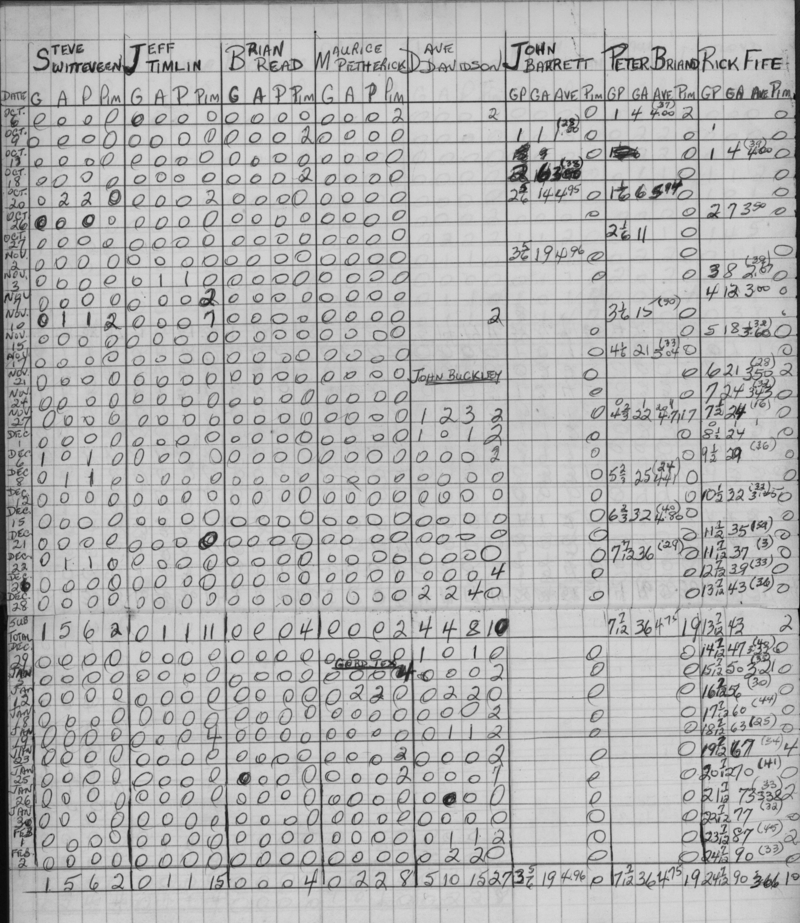 STEVE JEFF BRIAN MAURICE DAVE JOHN PETER BRIAND RICK FIFE
SWITTEVEEN TIMLIN READ PETHERICK DAVIDSON BARRETT
DATE G A P Pim G A P Pim G A P Pim G A P Pim GP GA AVE Pim GP GA AVE Pim GP GA AVE Pim
OCT. 6 0 0 0 0 0 0 0 0 0 0 0 0 0 0 0 2 2 0 1 4 4.00 (27) 2 0
OCT. 9 0 0 0 0 0 0 0 0 0 0 0 2 0 0 0 0 1 1 (28)
OCT. 13 0 0 0 0 0 0 0 0 0 0 0 0 0 0 0 0 9 0 0 1 4 4.00 0
OCT. 18 0 0 0 0 0 0 0 0 0 0 0 2 0 0 0 0
OCT. 20 0 2 2 0 0 0 0 2 0 0 0 0 0 0 0 0 14 4.95 0 6 0
OCT. 26 0 0 0 0 0 0 0 0 0 0 0 0 0 0 0 0 0 0 2 7 3.50 0
OCT. 27 0 0 0 0 0 0 0 0 0 0 0 0 0 0 0 0 2 1/6 11 0
NOV. 2 0 0 0 0 0 0 0 0 0 0 0 0 0 0 0 0 3 5/6 19 4.96 0 0 0
NOV. 3 0 0 0 0 0 1 1 0 0 0 0 0 0 0 0 0 0 0 3 8 0
NOV. 0 0 0 0 0 0 0 2 0 0 0 0 0 0 0 0 4 12 3.00 0
NOV. 10 0 1 1 2 0 0 0 7 0 0 0 0 0 0 0 0 2 3 1/6 15 (30) 0
NOV. 15 0 0 0 0 0 0 0 0 0 0 0 0 0 0 0 0 0 0 5 18 3.60 0
NOV. 0 0 0 0 0 0 0 0 0 0 0 0 0 0 0 0 0 4 1/6 21 (33) 0
NOV. 21 0 0 0 0 0 0 0 0 0 0 0 0 0 0 0 0 JOHN BUCKLEY 0 0 6 21 3.50 (28) 2
NOV. 24 0 0 0 0 0 0 0 0 0 0 0 0 0 0 0 0 0 0 7 24 0
NOV. 27 0 0 0 0 0 0 0 0 0 0 0 0 0 0 0 0 1 2 3 2 0 22 17 24 (16)
DEC 0 0 0 0 0 0 0 0 0 0 0 0 0 0 0 0 1 0 1 2 0 0 8 1/2 24
DEC 6 1 0 1 0 0 0 0 0 0 0 0 0 0 0 0 0 0 0 0 2 0 0 9 1/2 29 (36)
DEC 8 0 1 1 0 0 0 0 0 0 0 0 0 0 0 0 0 0 0 0 0 5 2/3 25 4.41 (24) 0
DEC 0 0 0 0 0 0 0 0 0 0 0 0 0 0 0 0 0 0 0 0 0 0 10 1/2 32 0
DEC. 15 0 0 0 0 0 0 0 0 0 0 0 0 0 0 0 0 0 0 0 0 0 6 2/3 32 (40) 0
DEC. 21 0 0 0 0 0 0 0 0 0 0 0 0 0 0 0 0 0 0 0 0 0 0 11 1/2 35
DEC. 22 0 1 1 0 0 0 0 0 0 0 0 0 0 0 0 0 0 0 0 0 0 7 7/12 36 (29) 0 37 (3) 0
DEC 0 0 0 0 0 0 0 0 0 0 0 0 0 0 0 0 0 0 0 4 0 0 12 7/12 39 (33) 0
DEC. 28 0 0 0 0 0 0 0 0 0 0 0 0 0 0 0 0 2 2 4 0 0 0 13 7/12 43 (36) 0
SUB TOTAL 1 5 6 2 0 1 1 11 0 0 0 4 0 0 0 2 4 4 8 10 7 7/12 36 4.75 19 13 7/12 43 2
DEC. 29 0 0 0 0 0 0 0 0 0 0 0 0 0 0 0 0 1 0 1 0 0 0 14 7/12 47 0
JAN 0 0 0 0 0 0 0 0 0 0 0 0 4 0 0 0 2 0 0 15 7/12 50 0
JAN 12 0 0 0 0 0 0 0 0 0 0 0 0 0 2 2 0 0 2 2 0 0 0 16 7/12 56 (30) 0
JAN 18 0 0 0 0 0 0 0 0 0 0 0 0 0 0 0 0 0 0 0 2 0 0 17 7/12 60 (44) 0
JAN 19 0 0 0 0 0 0 0 4 0 0 0 0 0 0 0 0 0 1 1 2 0 0 18 7/12 63 (25) 0
JAN 23 0 0 0 0 0 0 0 0 0 0 0 0 0 0 0 2 0 0 0 2 0 0 19 7/12 67 4
JAN 25 0 0 0 0 0 0 0 0 0 0 0 0 0 0 0 2 0 0 0 0 0 20 7/12 70 (41) 0
JAN 26 0 0 0 0 0 0 0 0 0 0 0 0 0 0 0 0 0 0 0 0 0 0 21 7/12 73 (33) 2
JAN 0 0 0 0 0 0 0 0 0 0 0 0 0 0 0 0 0 0 0 0 0 0 22 7/12 77 (32) 0
FEB 1 0 0 0 0 0 0 0 0 0 0 0 0 0 0 0 0 0 1 1 2 0 0 23 7/12 87 (45) 2
FEB. 2 0 0 0 0 0 0 0 0 0 0 0 0 0 0 0 0 0 2 2 0 0 0 24 7/12 90 (33) 0
1 5 6 2 0 1 1 15 0 0 0 4 0 2 2 8 5 10 15 27 3 5/6 19 4.96 0 7 7/12 36 4.75 19 24 7/12 90 3.66 10